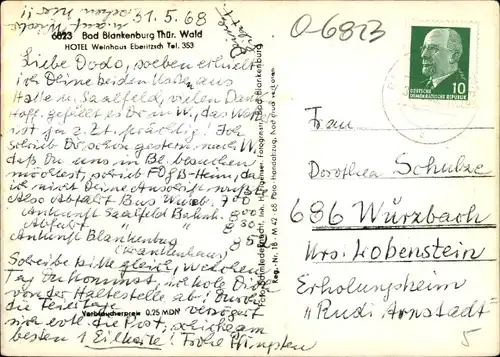 31.5.68
6823 Bad Blankenburg Thür. Wald
HOTEL Weinhaus Eberitzsch Tel. 353
Liebe Dodo, soeben erhielt
ich Deine beiden Karten aus
Halle u. Saalfeld, vielen Dank
Hoff. gefällt es Dir in W., das Wetter
ist ja z. Zt. prächtig! Ich
schrieb Dir schon gestern nach W.
daß Du uns in Bl. besuchen
möchtest, schrieb FDGB-Heim, da
ich nicht Deine Anschrift wußte.
Also Abfahrt Bus Wurzb. 7.00
Ankunft Saalfeld Bahnh. 8.00
Abfahrt " " 8.30
Ankunft Blankenburg 8.50
(Krankenhaus)
Schreibe bitte gleich, welchen
Tag Du kommst, ich hole Dich
von der Haltestelle ab! Durch
die Feiertage verzögert
sich evtl. die Post, schicke am
besten 1 Eilkarte! Frohe Pfingsten
Verbraucherpreis 0.25 MDN
Reg.-Nr. 18 M 42 68 Foto Handabzug, Nachdruck verboten
O-6823
10
DEUTSCHE
DEMOKRATISCHE REPUBLIK
Frau
Dorothea Schulze
686 Wurzbach
Krs. Lobenstein
Erholungsheim
"Rudi Arnstadt"
5